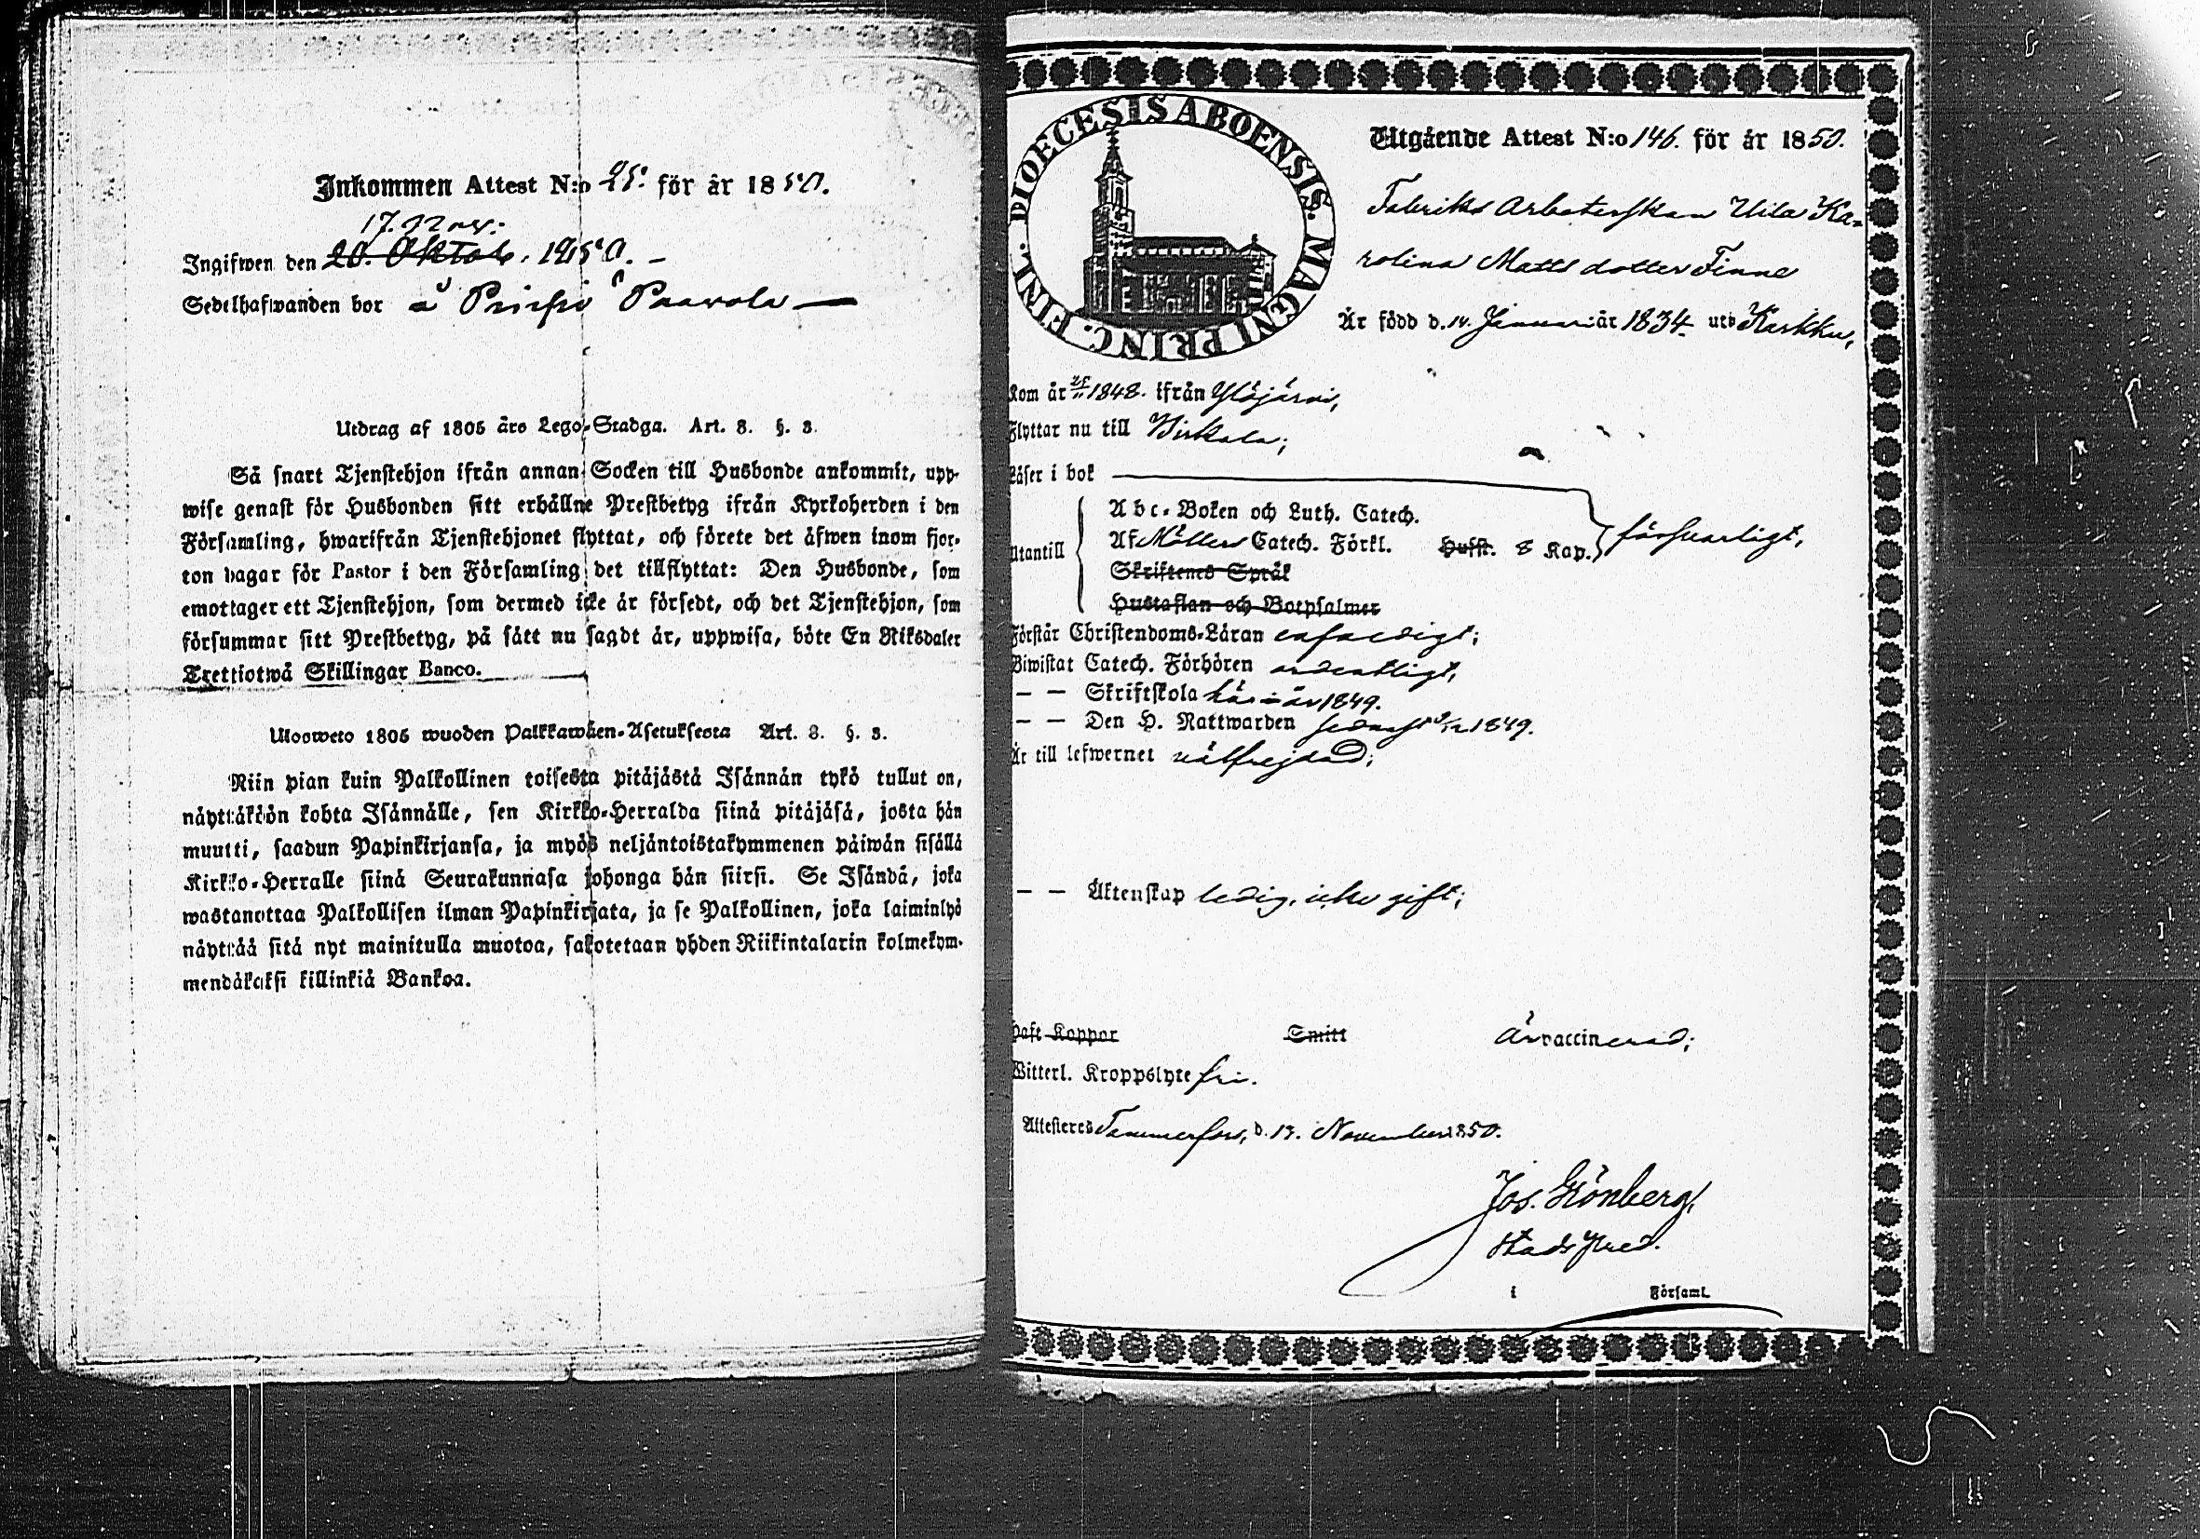 Inkommen Attest N:o 25. för år 1850.
17. Nov.
Ingifwen den 20. Oktob. 1850. –
Sedelhafwanden bor å Paavola —
Utdrag af 1805 års Lego-Stadga. Art. 8. §. 3.
Så snart Tjenstehjon ifrån annan Socken till Husbonde ankommit, upp-
wise genast för Husbonden sitt erhållne Prestbetyg ifrån Kyrkoherden i den
Församling, hwarifrån Tjenstehjonet flyttat, och förete det äfwen inom fjor-
ton dagar för Pastor i den Församling det tillflyttat: Den Husbonde, som
emottager ett Tjenstehjon, som dermed icke är försedt, och det Tjenstehjon, som
försummar sitt Prestbetyg, på sätt nu sagdt är, uppwisa, böte En Riksdaler
Trettiotwå Skillingar Banco.
Uloosweto 1805 wuoden Palkkawäen-Asetuksesta Art. 8. §. 3.
Niin pian kuin Palkollinen toisesta pitäjästä Isännän tykö tullut on,
näyttäköön kohta Isännälle, sen Kirkko-Herralda siinä pitäjäsä, josta hän
muutti, saadun Papinkirjansa, ja myös neljäntoistakymmenen päiwän sisällä
Kirkko-Herralle siinä Seurakunnasa johonga hän siirsi. Se Isändä, joka
wastanottaa Palkollisen ilman Papinkirjata, ja se Palkollinen, joka laiminlyö
näyttää sitä nyt mainitulla muotoa, sakotetaan yhden Riikintalarin kolmekym-
mendäkaksi killinkiä Bankoa.
DIOECESIS ABOENSIS. MAGNI PRINC. FINL.
Utgående Attest N:o 146. för år 1850.
Fabriks Arbeterskan Ulla Ka-
rolina Matts dotter Finne
Är född d. 14. Januari år 1834 uti Karkku,
Kom år 1848. ifrån Ylöjärvi,
Flyttar nu till Birkala;
Läser i bok
Utantill
Abc-Boken och Luth. Catech.
Af Möllers Catech. Förkl. Husst. 8 Kap. försvarligt,
Skriftenes Språk
Hustaflan och Botpsalmer
Förstår Christendoms-Läran enfaldigt;
Biwistat Catech. Förhören ordentligt,
– – Skriftskola här år 1849.
– – Den H. Nattwarden sednast 9/12 1849.
Är till lefwernet välfrejdad;
– – Äktenskap ledig, icke gift;
Haft Koppor Smitt Är vaccinerad;
Witterl. Kroppslyte fri.
Attesteres Tammerfors, d. 13. November 1850.
Jos. Grönberg,
Stads Pred.
i Församl.